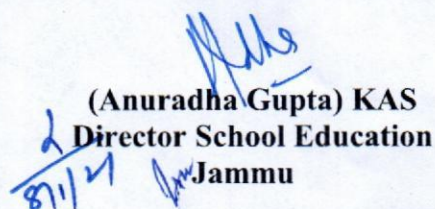 (Anuradha Gupta) KAS
Director School Education
Jammu
8/1/21